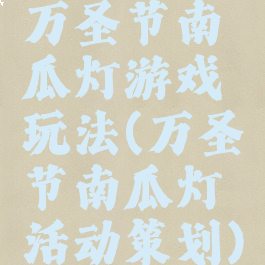 万圣节南
瓜灯游戏
玩法(万圣
节南瓜灯
活动策划)